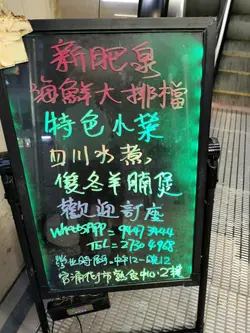 新肥泉
海鮮大排檔
特色小菜
四川水煮,
復冬羊腩煲
歡迎訂座
WhatsApp = 9447 3444
TEL = 2730 4968
營业時間=中午12–晚12
官涌街市熟食中心2樓